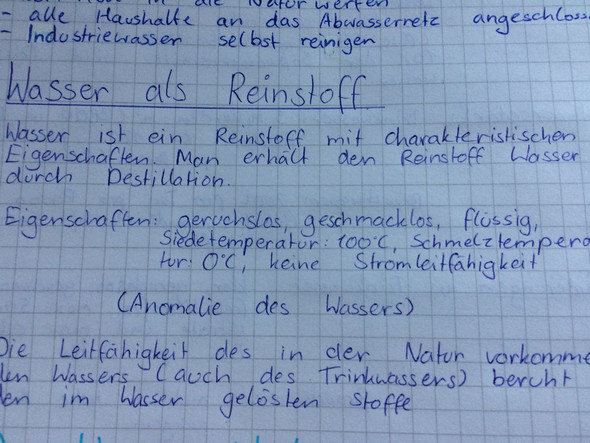 in die Natur werfen
- alle Haushalte an das Abwassernetz angeschloss
- Industriewasser selbst reinigen
Wasser als Reinstoff
Wasser ist ein Reinstoff mit charakteristischen
Eigenschaften. Man erhält den Reinstoff Wasser
durch Destillation.
Eigenschaften: geruchslos, geschmacklos, flüssig,
Siedetemperatur: 100°C, Schmelztempera
tur: 0°C, keine Stromleitfähigkeit
(Anomalie des Wassers)
Die Leitfähigkeit des in der Natur vorkomme
den Wassers (auch des Trinkwassers) beruht
den im Wasser gelösten Stoffe